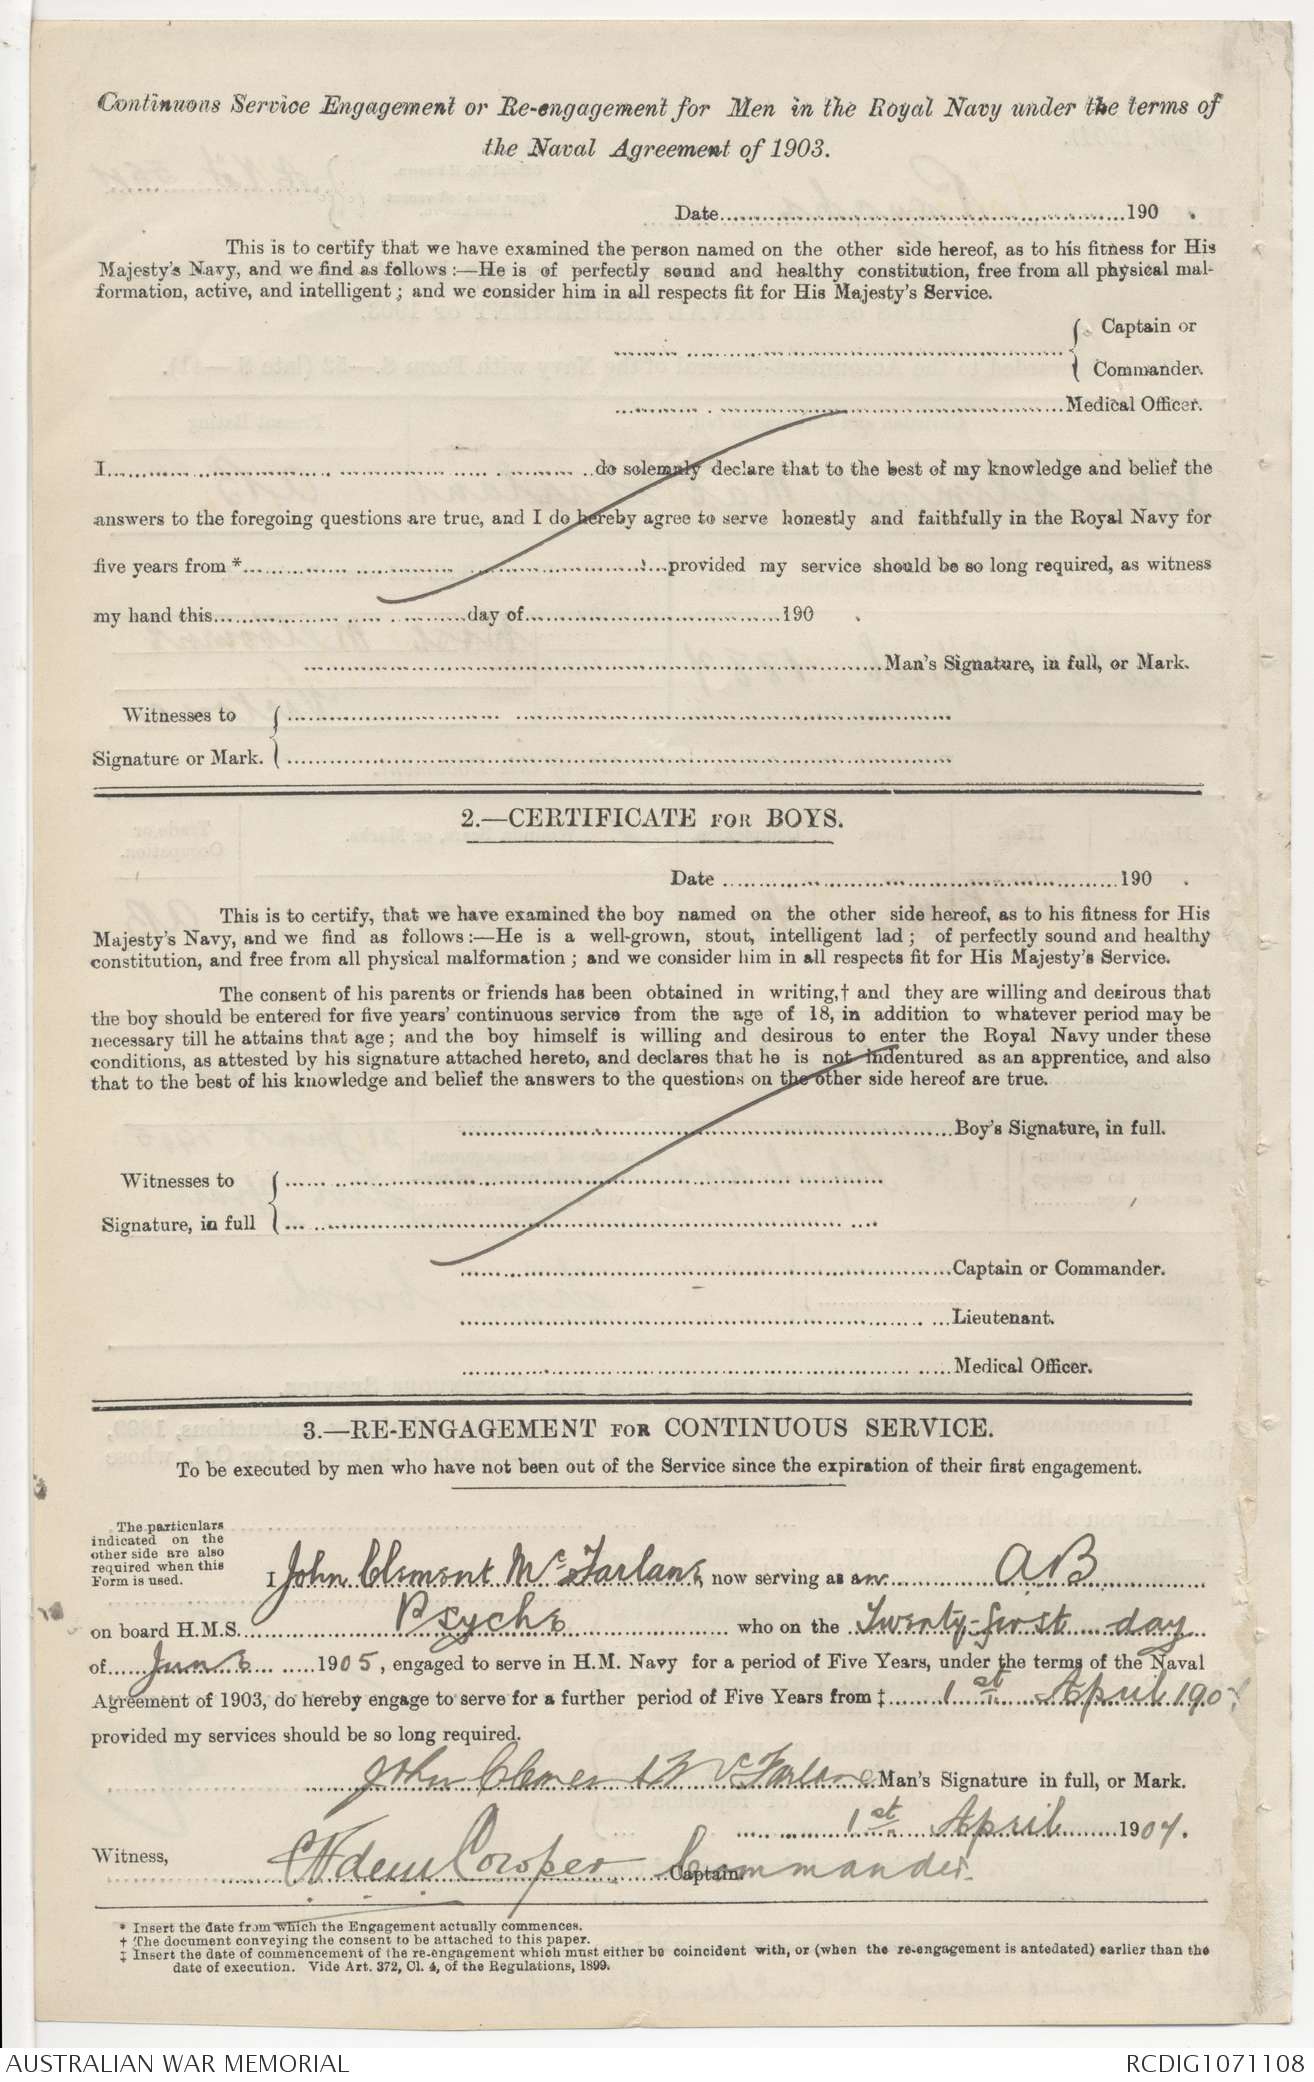 Continuous Service Engagement or Re-engagement for Men in the Royal Navy under the terms of
the Naval Agreement of 1903.
Date 190 .
This is to certify that we have examined the person named on the other side hereof, as to his fitness for His
Majesty's Navy, and we find as follows :—He is of perfectly sound and healthy constitution, free from all physical mal-
formation, active, and intelligent ; and we consider him in all respects fit for His Majesty's Service.
Captain or
Commander.
Medical Officer.
I do solemnly declare that to the best of my knowledge and belief the
answers to the foregoing questions are true, and I do hereby agree to serve honestly and faithfully in the Royal Navy for
five years from * provided my service should be so long required, as witness
my hand this day of 190 .
Man's Signature, in full, or Mark.
Witnesses to
Signature or Mark.
2.—CERTIFICATE FOR BOYS.
Date 190 .
This is to certify, that we have examined the boy named on the other side hereof, as to his fitness for His
Majesty's Navy, and we find as follows :—He is a well-grown, stout, intelligent lad ; of perfectly sound and healthy
constitution, and free from all physical malformation ; and we consider him in all respects fit for His Majesty's Service.
The consent of his parents or friends has been obtained in writing,† and they are willing and desirous that
the boy should be entered for five years' continuous service from the age of 18, in addition to whatever period may be
necessary till he attains that age ; and the boy himself is willing and desirous to enter the Royal Navy under these
conditions, as attested by his signature attached hereto, and declares that he is not indentured as an apprentice, and also
that to the best of his knowledge and belief the answers to the questions on the other side hereof are true.
Boy's Signature, in full.
Witnesses to
Signature, in full
Captain or Commander.
Lieutenant.
Medical Officer.
3.—RE-ENGAGEMENT FOR CONTINUOUS SERVICE.
To be executed by men who have not been out of the Service since the expiration of their first engagement.
The particulars
indicated on the
other side are also
required when this
Form is used.
I John Clement McFarlane, now serving as an AB
on board H.M.S. Psyche who on the Twenty-first day
of June 1905, engaged to serve in H.M. Navy for a period of Five Years, under the terms of the Naval
Agreement of 1903, do hereby engage to serve for a further period of Five Years from ‡ 1st April 1907
provided my services should be so long required.
John Clement McFarlane Man's Signature in full, or Mark.
1st April 1907.
Witness, Cowper Captain. Commander.
* Insert the date from which the Engagement actually commences.
† The document conveying the consent to be attached to this paper.
‡ Insert the date of commencement of the re-engagement which must either be coincident with, or (when the re-engagement is antedated) earlier than the
date of execution. Vide Art. 372, Cl. 4, of the Regulations, 1899.
AUSTRALIAN WAR MEMORIAL
RCDIG1071108